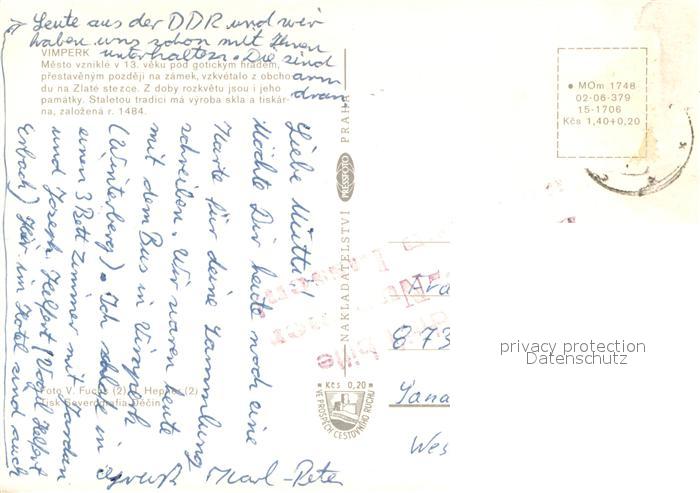 VIMPERK
Město vzniklé v 13. věku pod gotickým hradem,
přestavěným později na zámek, vzkvétalo z obcho-
du na Zlaté stezce. Z doby rozkvětu jsou i jeho
památky. Staletou tradici má výroba skla a tiskár-
na, založená r. 1484.
Liebe Mutti!
Möchte Dir heute noch eine
Karte für deine Sammlung
schreiben. Wir waren heute
mit dem Bus in Vimperk
(Winterberg). Ich schlafe in
einen 3 Bett Zimmer mit Jordan
und Joseph Helfert (Vogel Helfert
Erbach) Hier im Hotel sind auch
Leute aus der DDR und wir
haben uns schon mit Ihnen
unterhalten. Die sind
arm
dran.
Gruß Karl-Peter
Foto V. Fuchs (2), Hepner (2)
Tisk Severografia Děčín
NAKLADATELSTVÍ PRESSFOTO PRAHA
Kčs 0,20
VE PROSPĚCH CESTOVNÍHO RUCHU
MOm 1748
02-06-379
15-1706
Kčs 1,40+0,20
873
Wes
privacy protection
Datenschutz